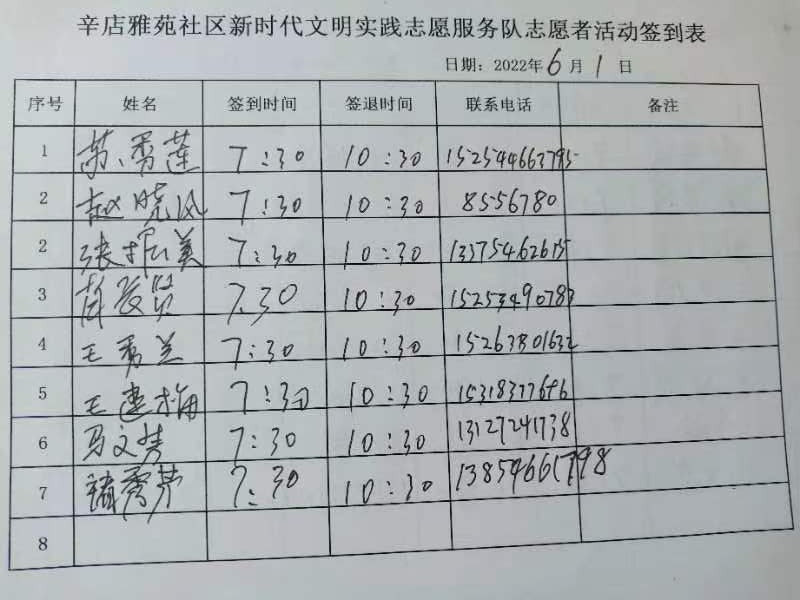 辛店雅苑社区新时代文明实践志愿服务队志愿者活动签到表
日期：2022年6月1日
序号 姓名 签到时间 签退时间 联系电话 备注
1 苏秀莲 7:30 10:30
2 赵晓风 7:30 10:30 8556780
2 张 美 7:30 10:30 13375462615
3 7.30 10:30 15253490783
4 王秀兰 7:30 10:30 15263801632
5 王建梅 7:30 10:30
6 马文 7:30 10:30 13127241738
7 秀芹 7:30 10:30
8